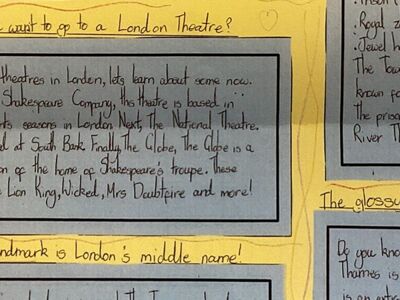 want to go to a London Theatre?
theatres in London, lets learn about some now.
Shakespeare Company, this theatre is based in
seasons in London Next, The National Theatre.
at South Bank Finally, The Globe, The Globe is a
of the home of Shakespeare's troupe. These
Lion King, Wicked, Mrs Doubtfire and more!
ndmark is London's middle name!
Royal z
Jewel h
The Tow
known fo
The prison
River Th
The glossa
Do you kno
Thames is
is an